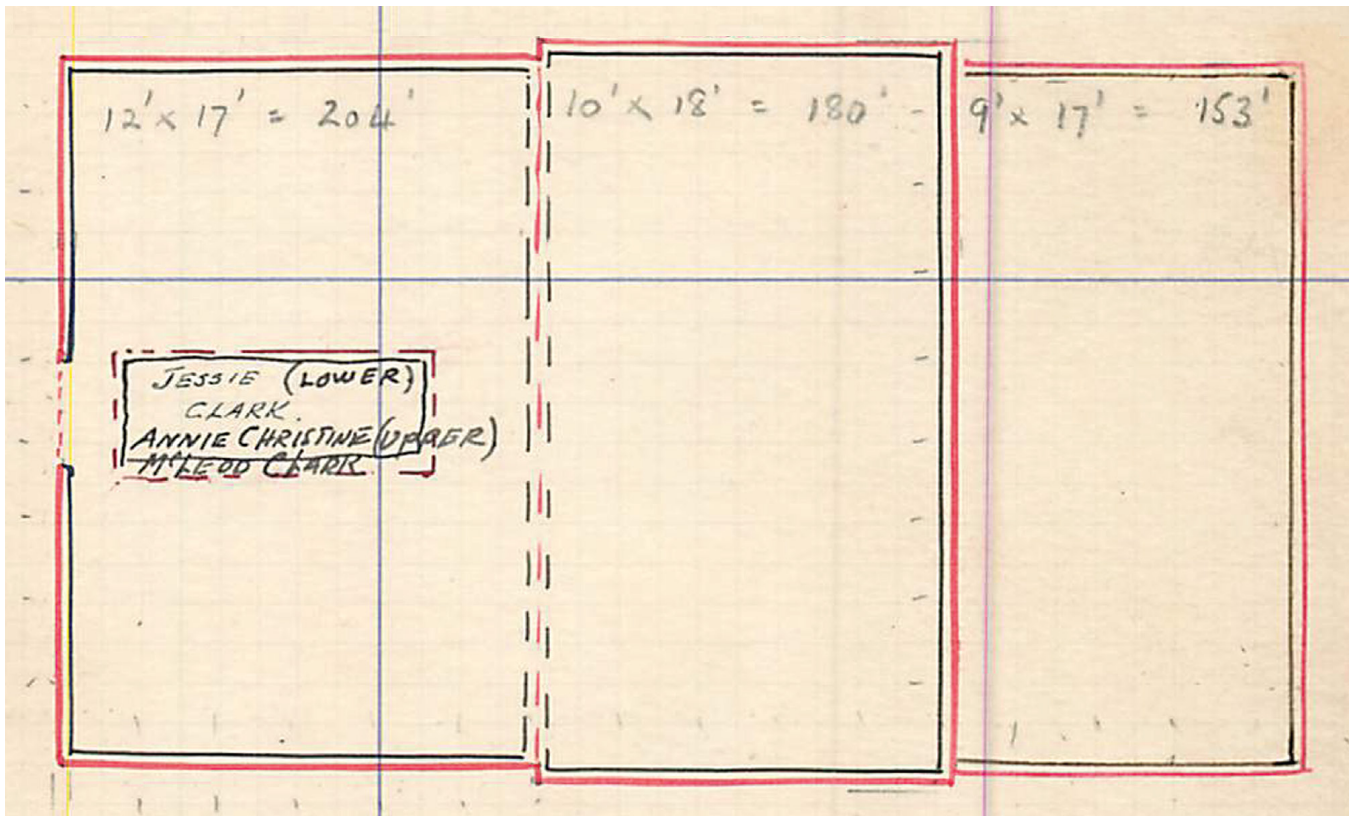 12' x 17' = 204'
10' x 18' = 180'
9' x 17' = 153'
JESSIE (LOWER)
CLARK.
ANNIE CHRISTINE (UPPER)
McLEOD CLARK